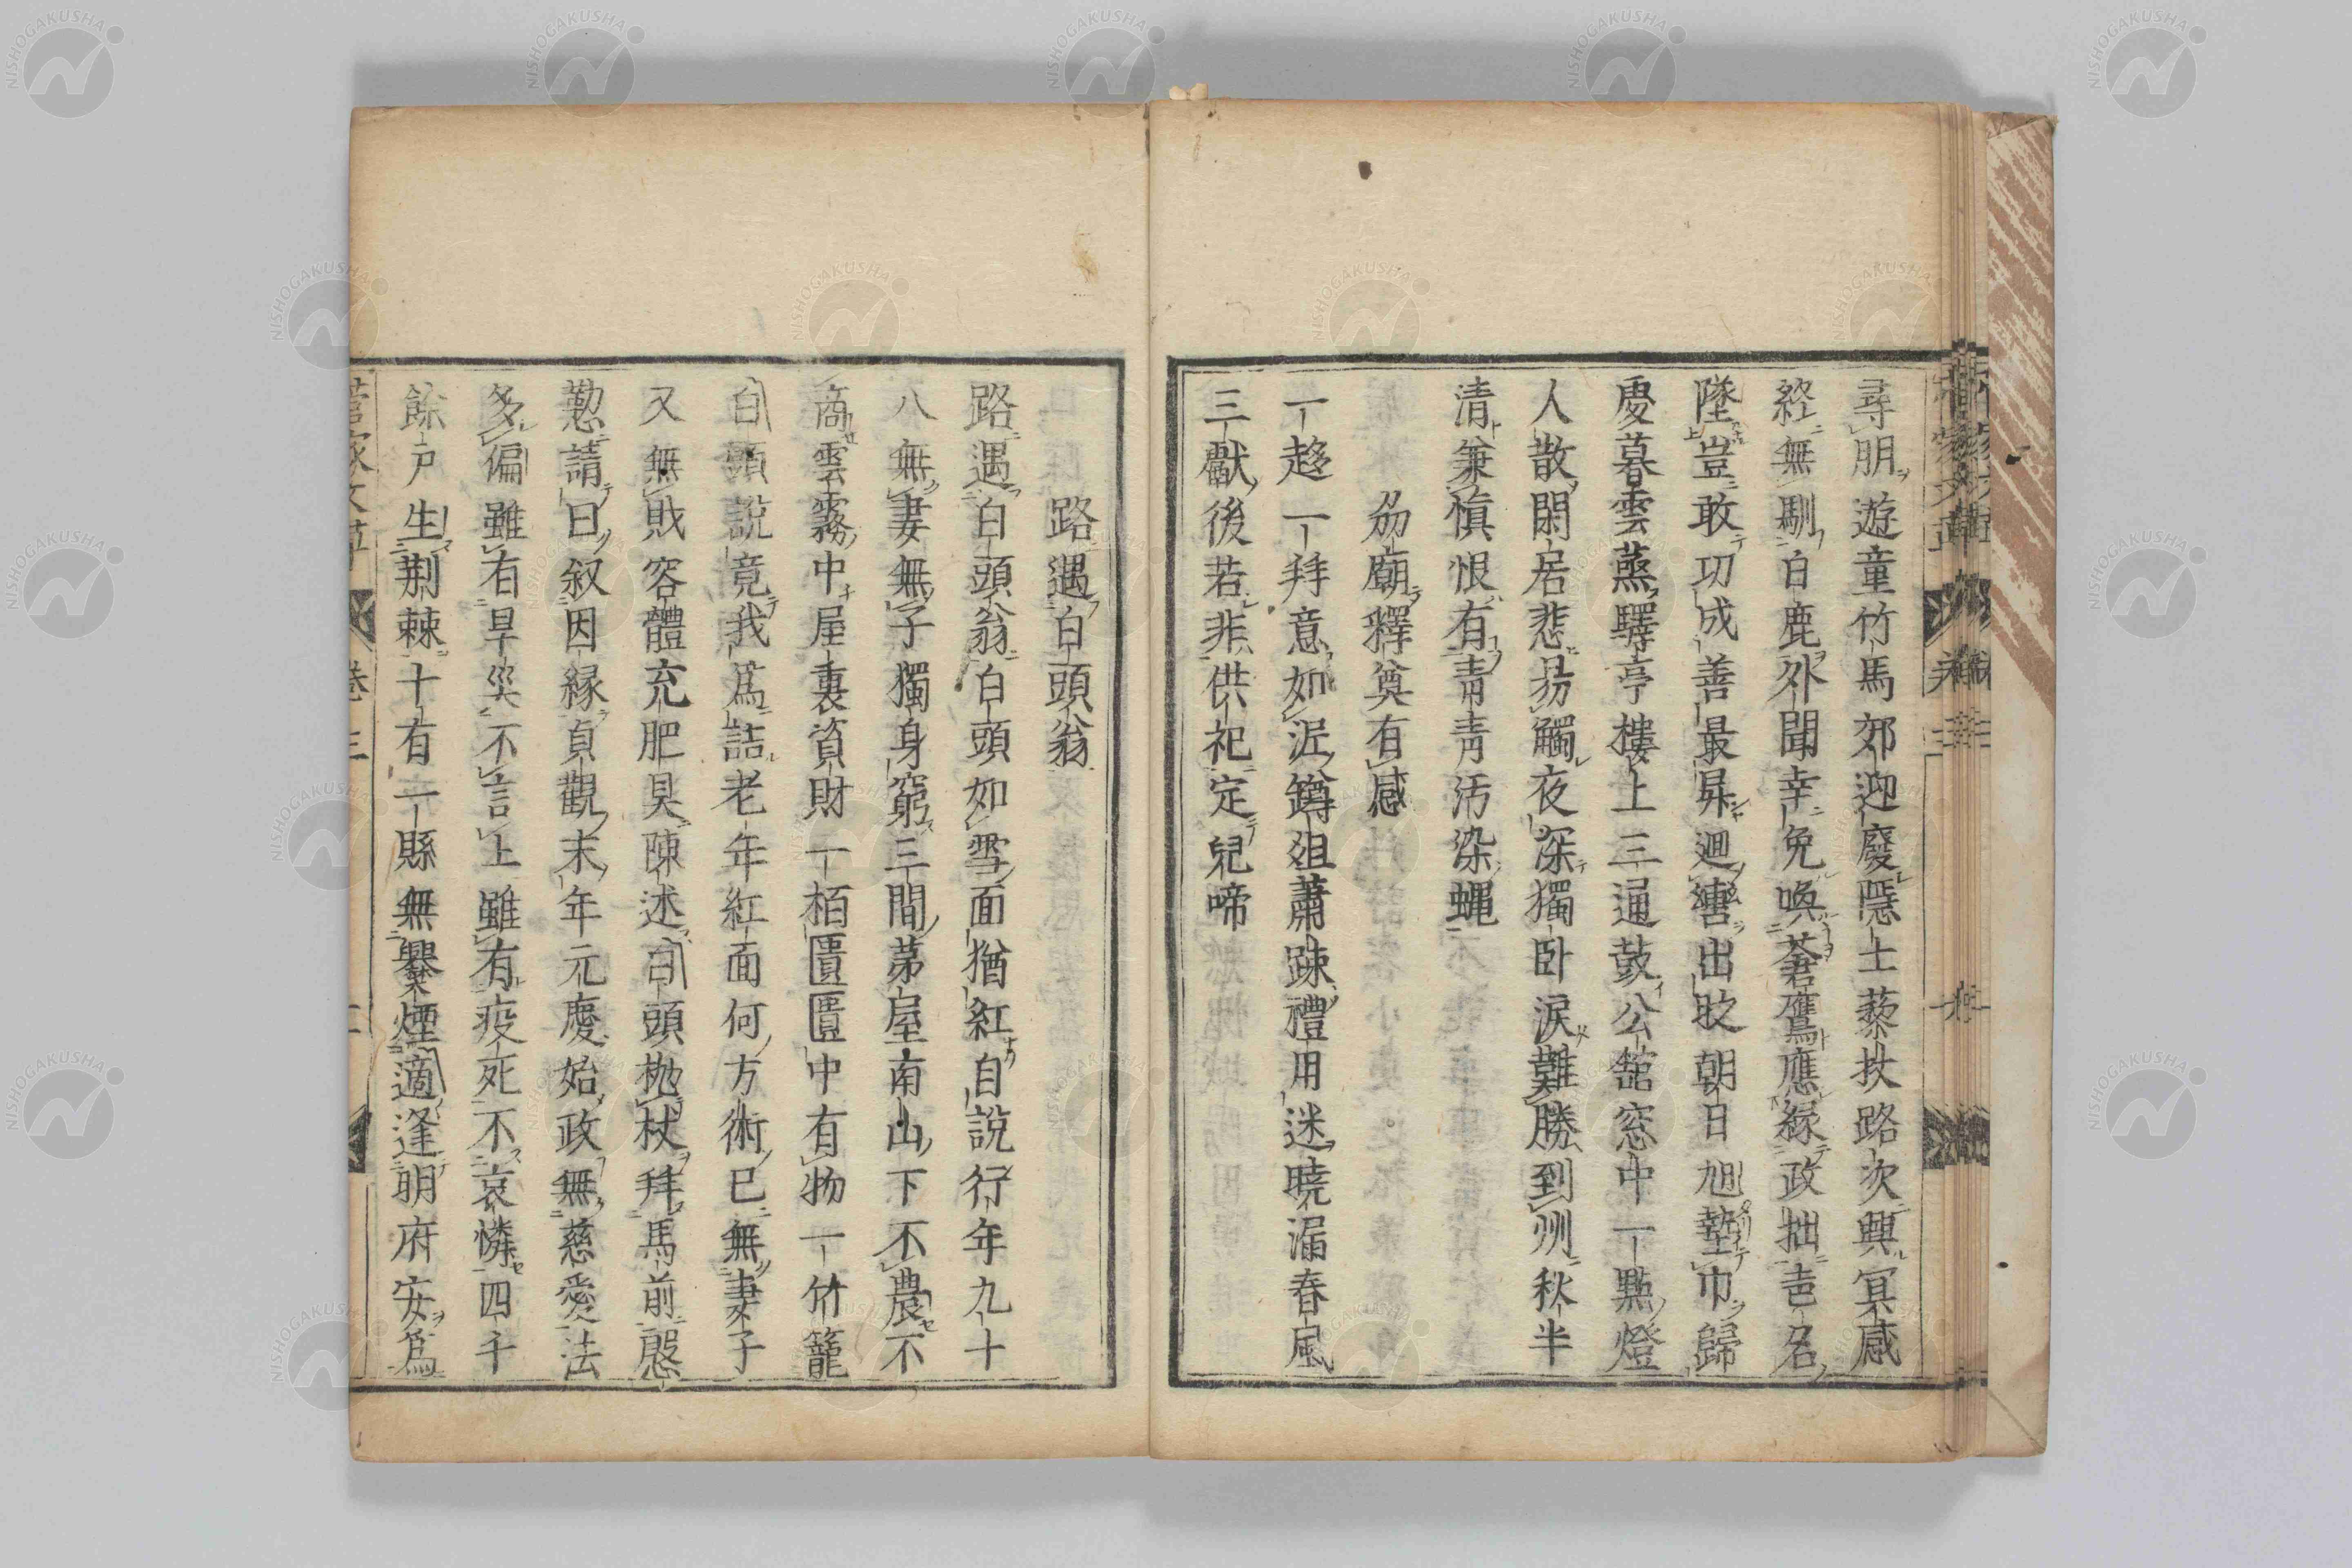 尋朋遊童竹馬郊迎廢隱士藜扶路次興冥感
終無馴白鹿外聞幸免喚蒼鷹應緣政拙芭名
墜豈敢功成善最昇廻轡出時朝日旭墊巾歸
慶暮雲蒸驛亭樓上三通鼓公舘窓中一點燈
人散閑居悲易觸夜深獨臥淚難勝到州秋半
清兼愼恨有青青汚染蝿
劦廟釋奠有感
一趍一拜意如泥罇俎蕭踈禮用迷曉漏春風
三獻後若非供祀定兒啼
路遇白頭翁
路遇白頭翁白頭如雪面猶紅自說行年九十
八無妻無子獨身窮三間茅屋南山下不農不
商雲霧中屋裏資財一栢匱匱中有物一竹籠
白頭說竟我爲詰老年紅面何方術已無妻子
又無財容體充肥具陳述白頭抛杖拜馬前慇
懃請曰叙因緣貞觀末年元慶始政無慈愛法
多偏雖有旱災不言上雖有疫死不哀憐四千
餘戶生荆棘十有一縣無爨煙適逢明府安爲
菅家文草 卷三
NISHOGAKUSHA